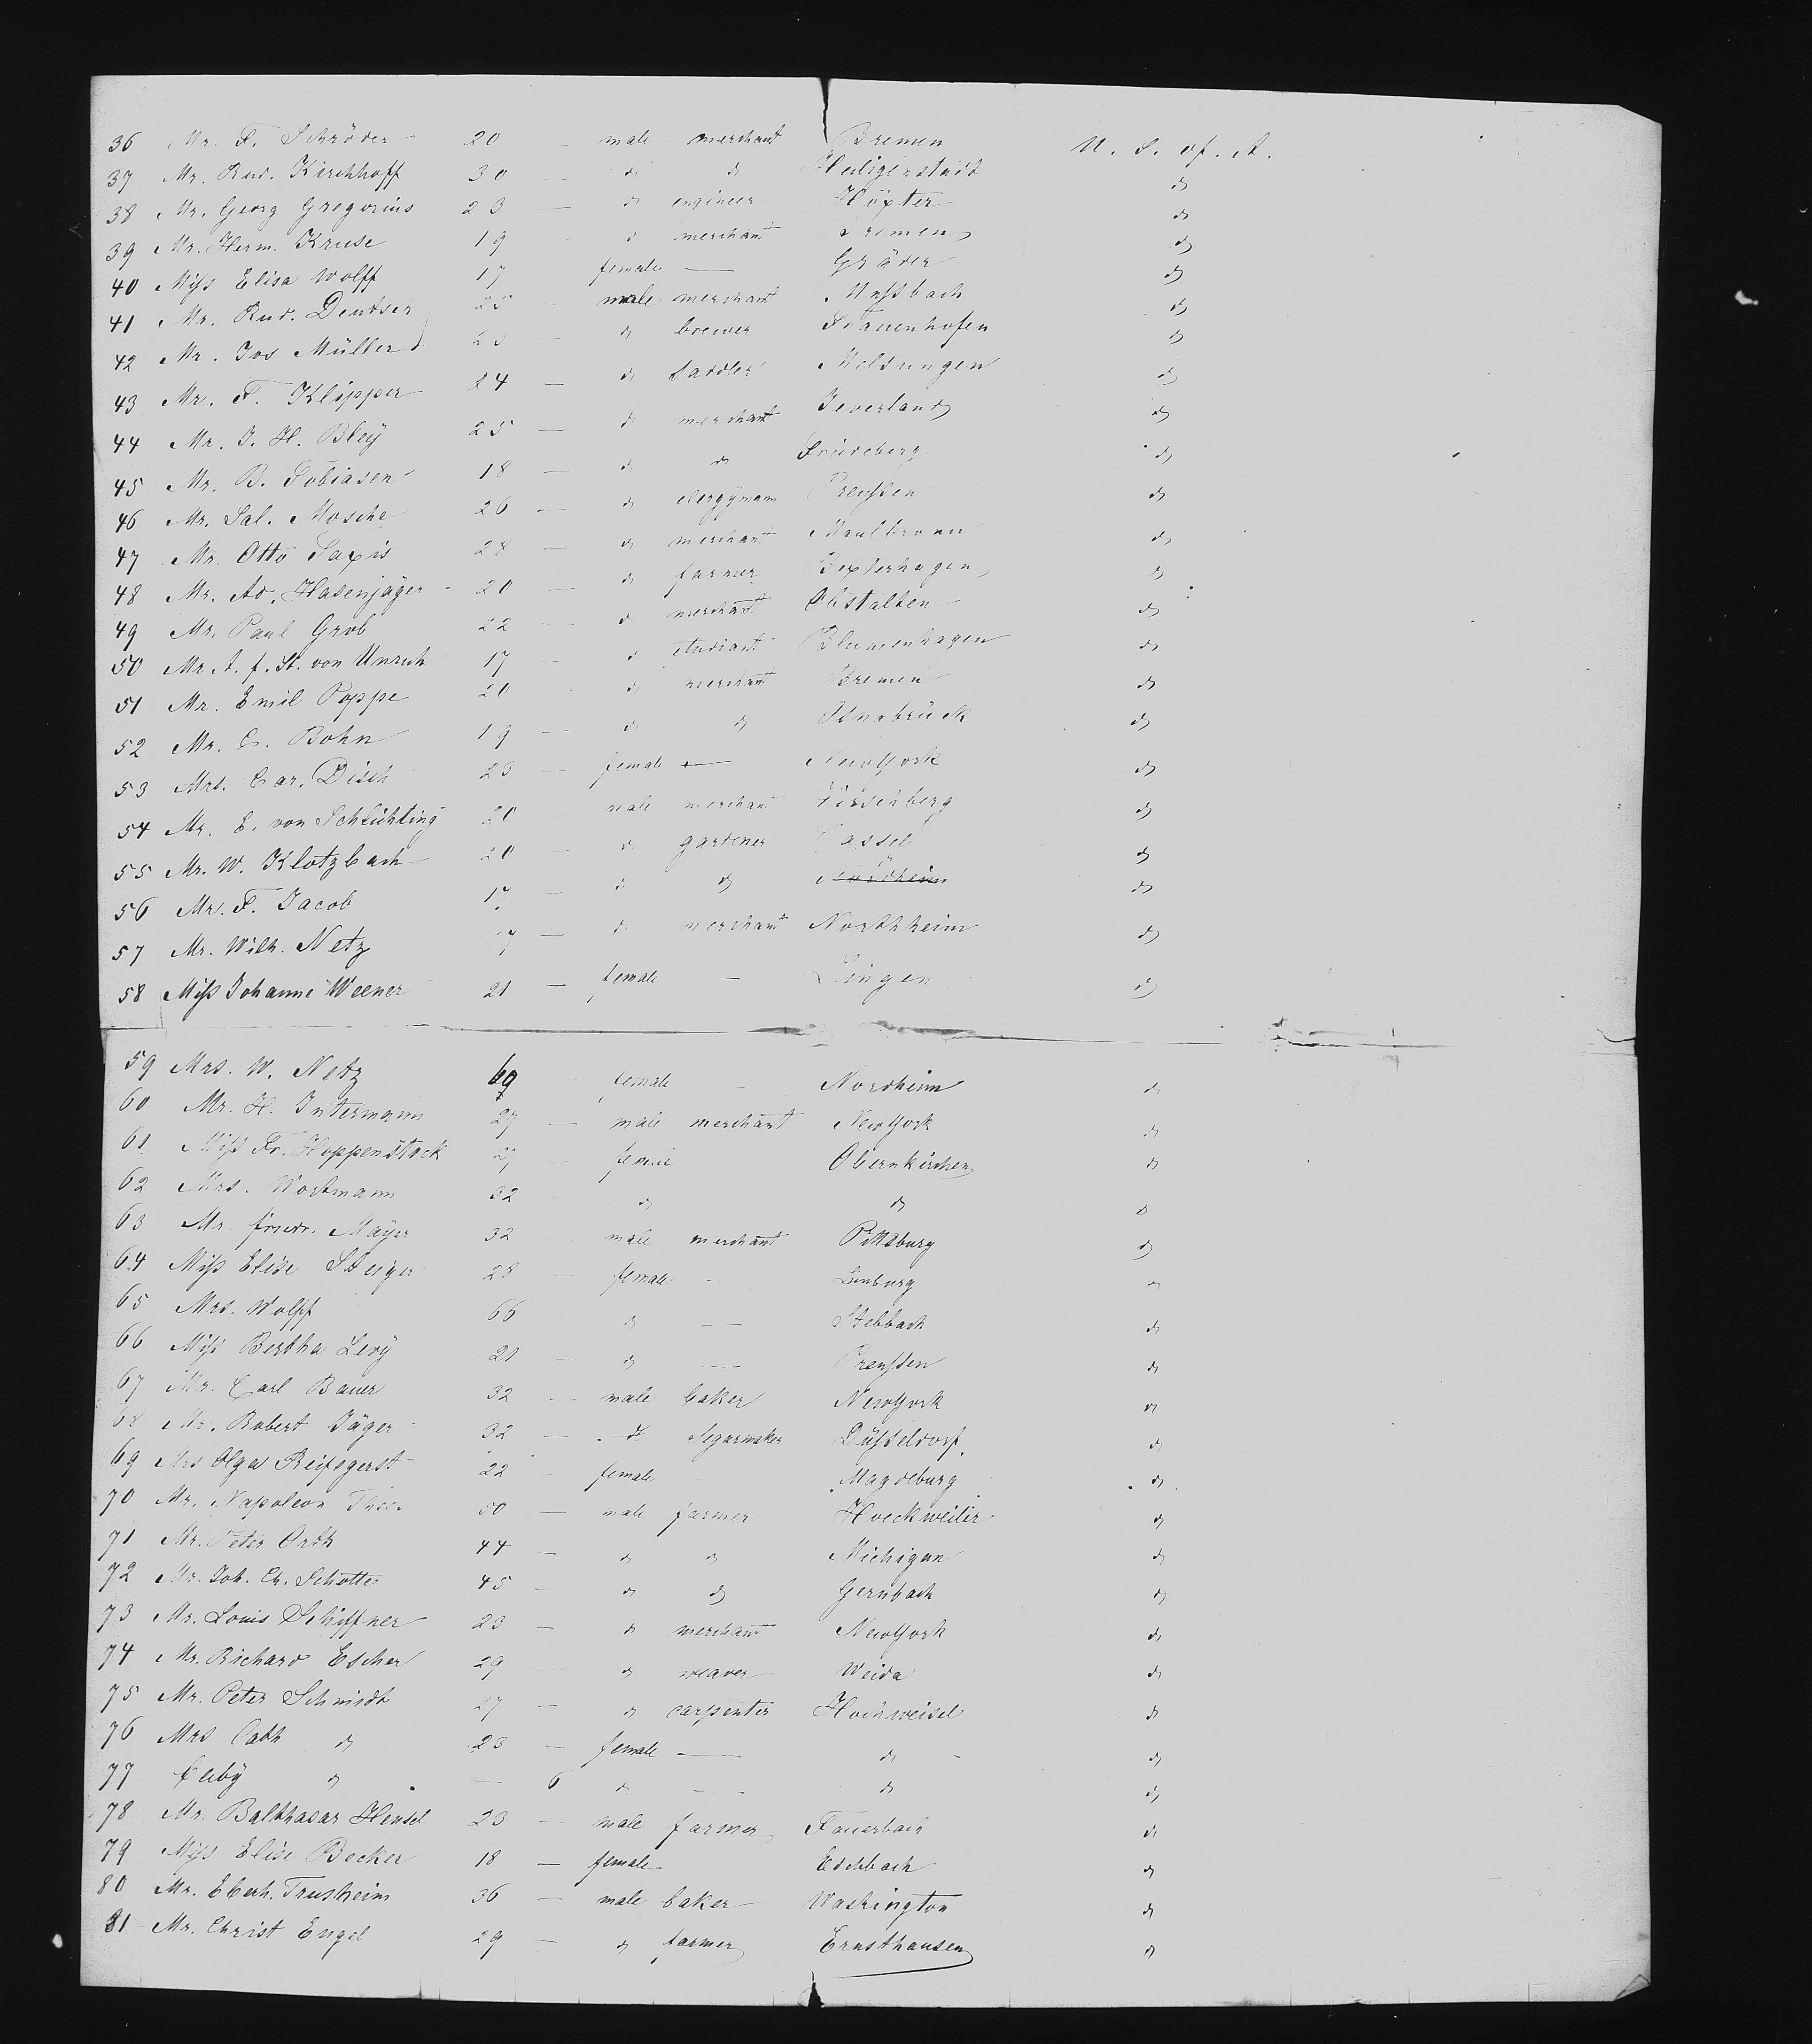 36 Mr. F. Schröder 20 male merchant Bremen U. S. of. A.
37 Mr. Rud. Kirchhoff 30 — do do Heiligenstadt do
38 Mr. Georg Gregorius 23 — do engineer Höxter do
39 Mr. Herm. Kruse 19 do merchant Bremen do
40 Miss Elisa Wolff 17 female — Gräver do
41 Mr. Rud. Deutser 25 male merchant Mussbach do
42 Mr. Jos Müller 23 do brewer Frauenhofen do
43 Mr. F. Klipper 24 — do saddler Melsungen do
44 Mr. J. H. Bley 25 — do merchant Jeverland do
45 Mr. B. Tobiasen 18 — do do Friedeberg do
46 Mr. Sal. Mosche 26 — do clergyman Preussen do
47 Mr. Otto Paxis 28 — do merchant Maulbronn do
48 Mr. Ad. Hasenjäger 20 — do farmer Bexterhagen do
49 Mr. Paul Grob 22 do merchant Obstalten do
50 Mr A. f. St. von Unruh 17 — do student Blumenhagen do
51 Mr. Emil Poppe 20 do merchant Bremen do
52 Mr. C. Bohn 19 — do do Osnabrück do
53 Mrs. Car. Disch 23 — female — NewYork do
54 Mr. E. von Schlichting 20 male merchant Hirschberg do
55 Mr. W. Klotzbach 20 — do gardener Cassel do
56 Mr. F. Jacob 17 — do do Nordheim do
57 Mr. Wilh. Netz — do merchant Northheim do
58 Miss Johanne Weener 21 — female — Lingen do
59 Mrs. W. Netz 69 female Nordheim do
60 Mr. H. Intermann 27 — male merchant NewYork do
61 Miss Fr. Hoppenstock female Obernkirchen do
62 Mrs. Wortmann 32 do do do
63 Mr. friedr. Mayer 32 male merchant Pittsburg do
64 Miss Elise Steiger 28 — female — Limburg do
65 Mrs. Wolff 66 do — Stebbach do
66 Miss Bertha Levy 21 — do — Preussen do
67 Mr. Carl Bauer 32 male baker NewYork do
68 Mr. Robert Jäger 32 — do Segarmaker Düsseldorf do
69 Mrs Olga Reifegerst 22 — female Magdeburg do
70 Mr. Napoleon 50 — male farmer Hoeckweiler do
71 Mr. Peter Orth 44 — do do Michigan do
72 Mr. Joh. Ch. Schotte 45 — do do Gernbach do
73 Mr. Louis Schiffner 23 — do merchant NewYork do
74 Mr. Richard Escher 29 do weaver Weida do
75 Mr. Peter Schmidt 27 — do carpenter Hochweisel do
76 Mrs Cath do 23 — female — do do
77 do — 6 do — do do
78 Mr. Balthasar Hensel 23 — male farmer Fauerbach do
79 Miss Elise Becker 18 — female Eschbach do
80 Mr. Eberh. Trustheim 36 — male baker Washington do
81 Mr. Christ Engel 29 — do farmer Ernsthausen do